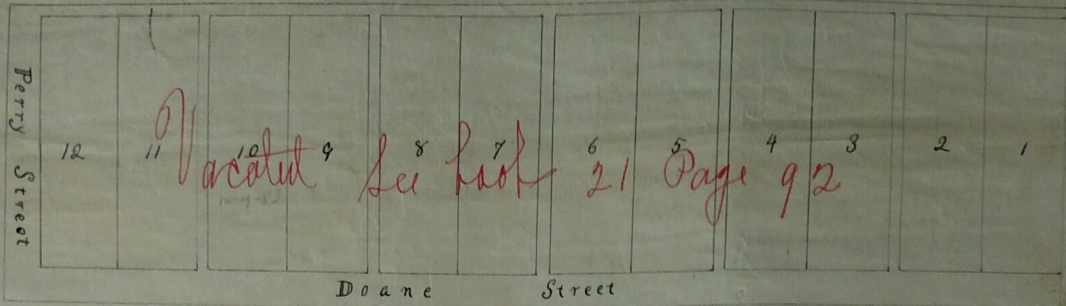 Perry Street
12 11 10 9 8 7 6 5 4 3 2 1
Vacated See book 21 Page 92
Doane Street